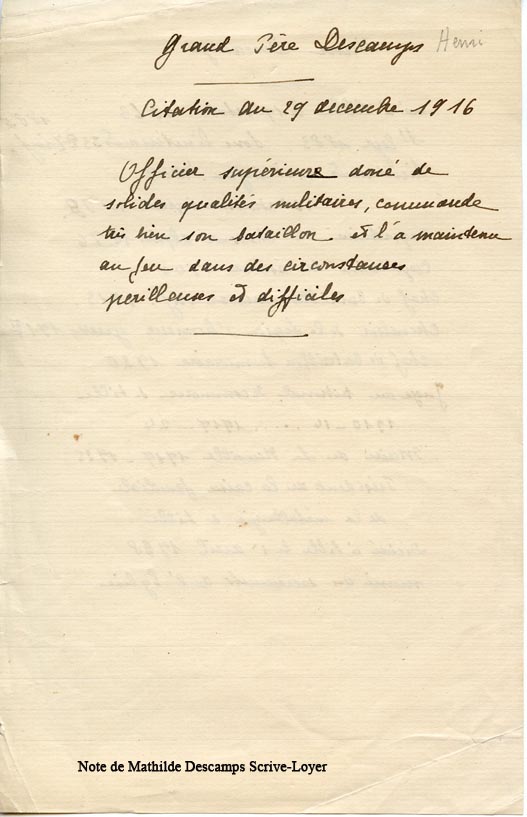 Grand Père Descamps Henri
Citation du 29 decembre 1916
Officier supérieure doué de
solides qualités militaires, commande
très bien son bataillon et l'a maintenu
au feu dans des circonstances
perilleuses et difficiles
Note de Mathilde Descamps Scrive-Loyer